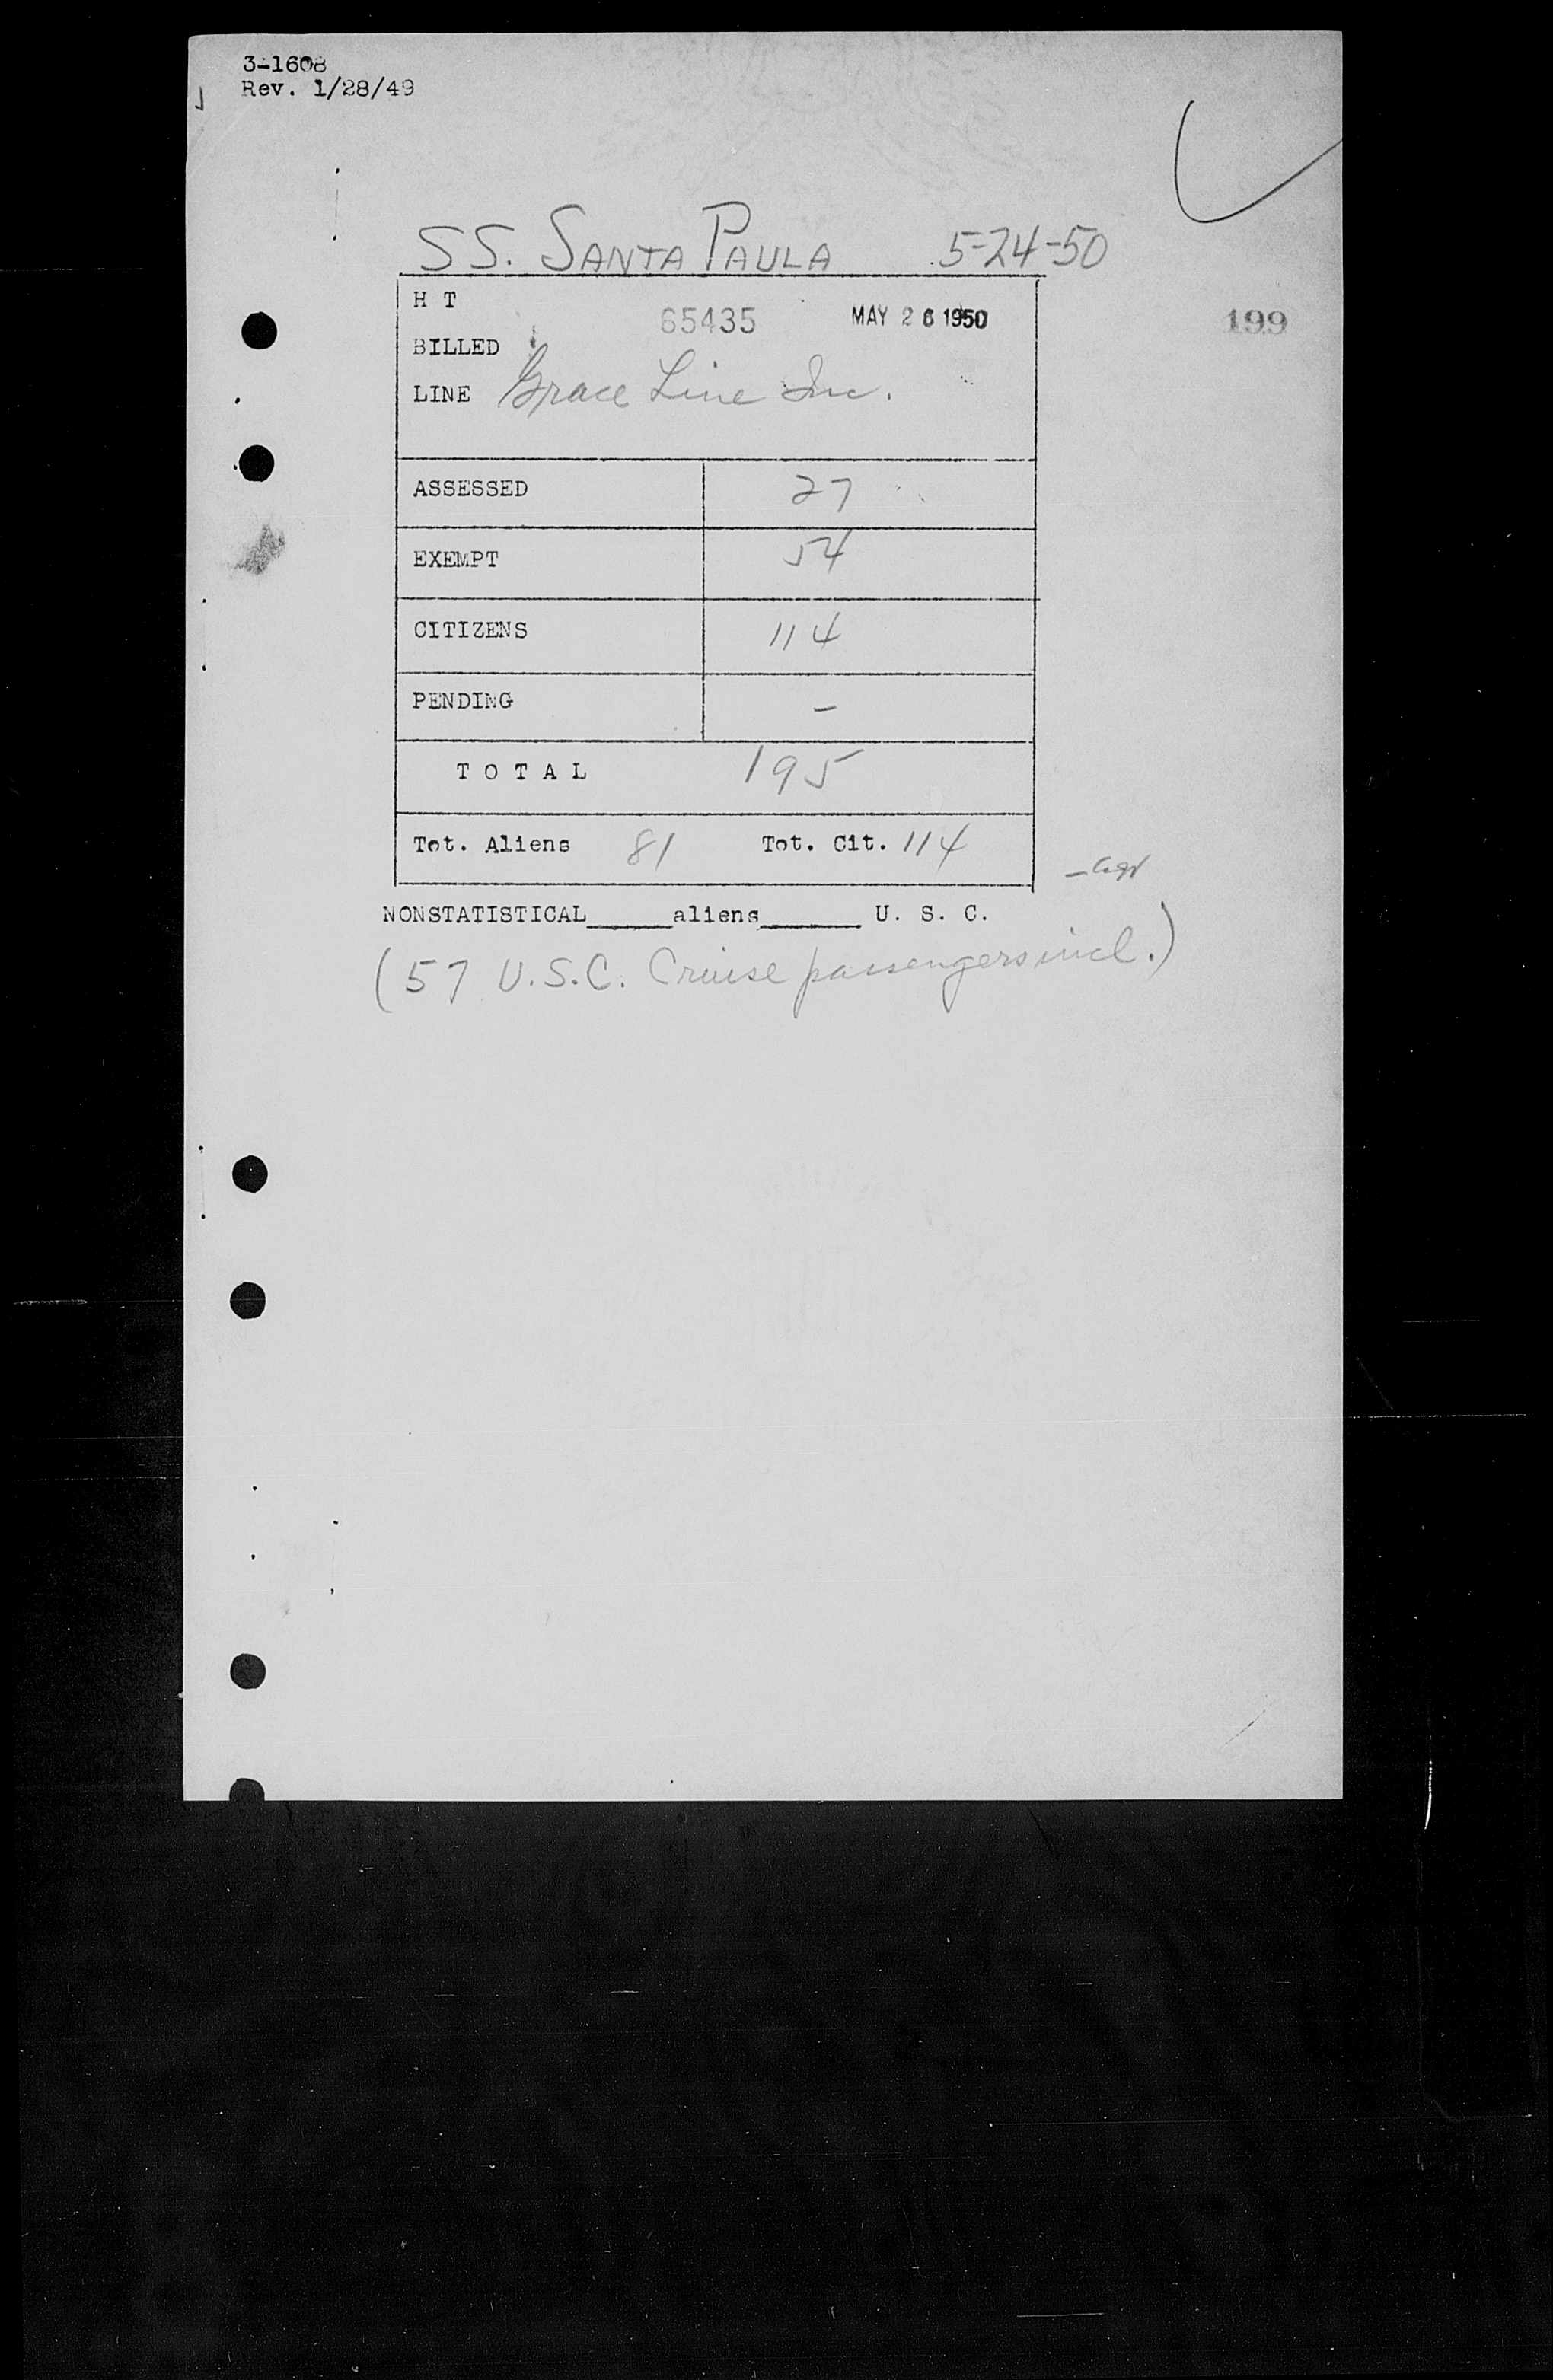 3-1608
Rev. 1/28/49
SS. SANTA PAULA 5-24-50
H T
65435 MAY 26 1950 199
BILLED
LINE Grace Line Inc.
ASSESSED 27
EXEMPT 54
CITIZENS 114
PENDING -
T O T A L 195
Tot. Aliens 81 Tot. Cit. 114
NONSTATISTICAL_____aliens______ U. S. C.
(57 U.S.C. Cruise passengers incl.)